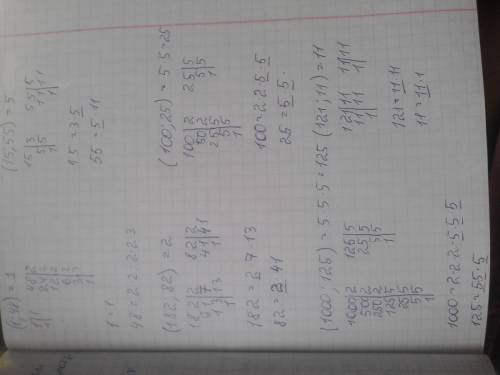 (1,48) = 1
1|1 48|2
1| 24|2
12|2
6|2
3|3
1|
1=1
48=2·2·2·2·3
(15,55) = 5
15|3 55|5
5|5 11|11
1| 1|
15=3·5
55=5·11
(182,82) = 2
182|2 82|2
91|7 41|41
13|13 1|
1|
182=2·7·13
82=2·41
(100,25) = 5·5=25
100|2 25|5
50|2 5|5
25|5 1|
5|5
1|
100=2·2·5·5
25=5·5
(1000;125) = 5·5·5=125
1000|2 125|5
500|2 25|5
250|2 5|5
125|5 1|
25|5
5|5
1|
1000=2·2·2·5·5·5
125=5·5·5
(121;11) = 11
121|11 11|11
11|11 1|
1|
121=11·11
11=11·1